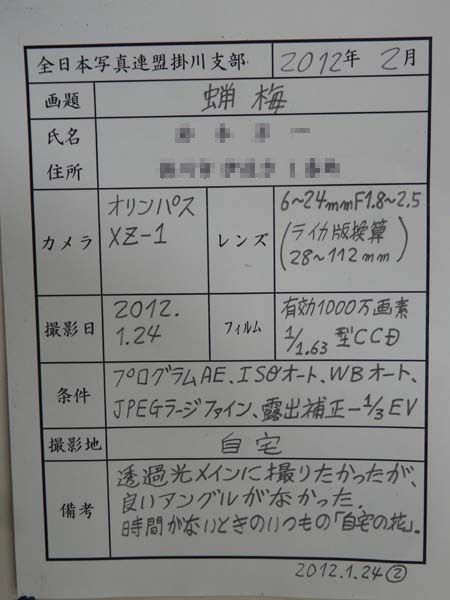 全日本写真連盟掛川支部 2012年 2月
画題 蝋梅
氏名
住所
カメラ オリンパス
XZ-1
レンズ 6~24mmF1.8~2.5
(ライカ版換算
28~112mm)
撮影日 2012.
1.24
フィルム 有効1000万画素
1/1.63型CCD
条件 プログラムAE、ISOオート、WBオート、
JPEGラージファイン、露出補正-1/3EV
撮影地 自宅
備考 透過光メインに撮りたかったが、
良いアングルがなかった.
時間がないときのいつもの「自宅の花」.
2012.1.24②